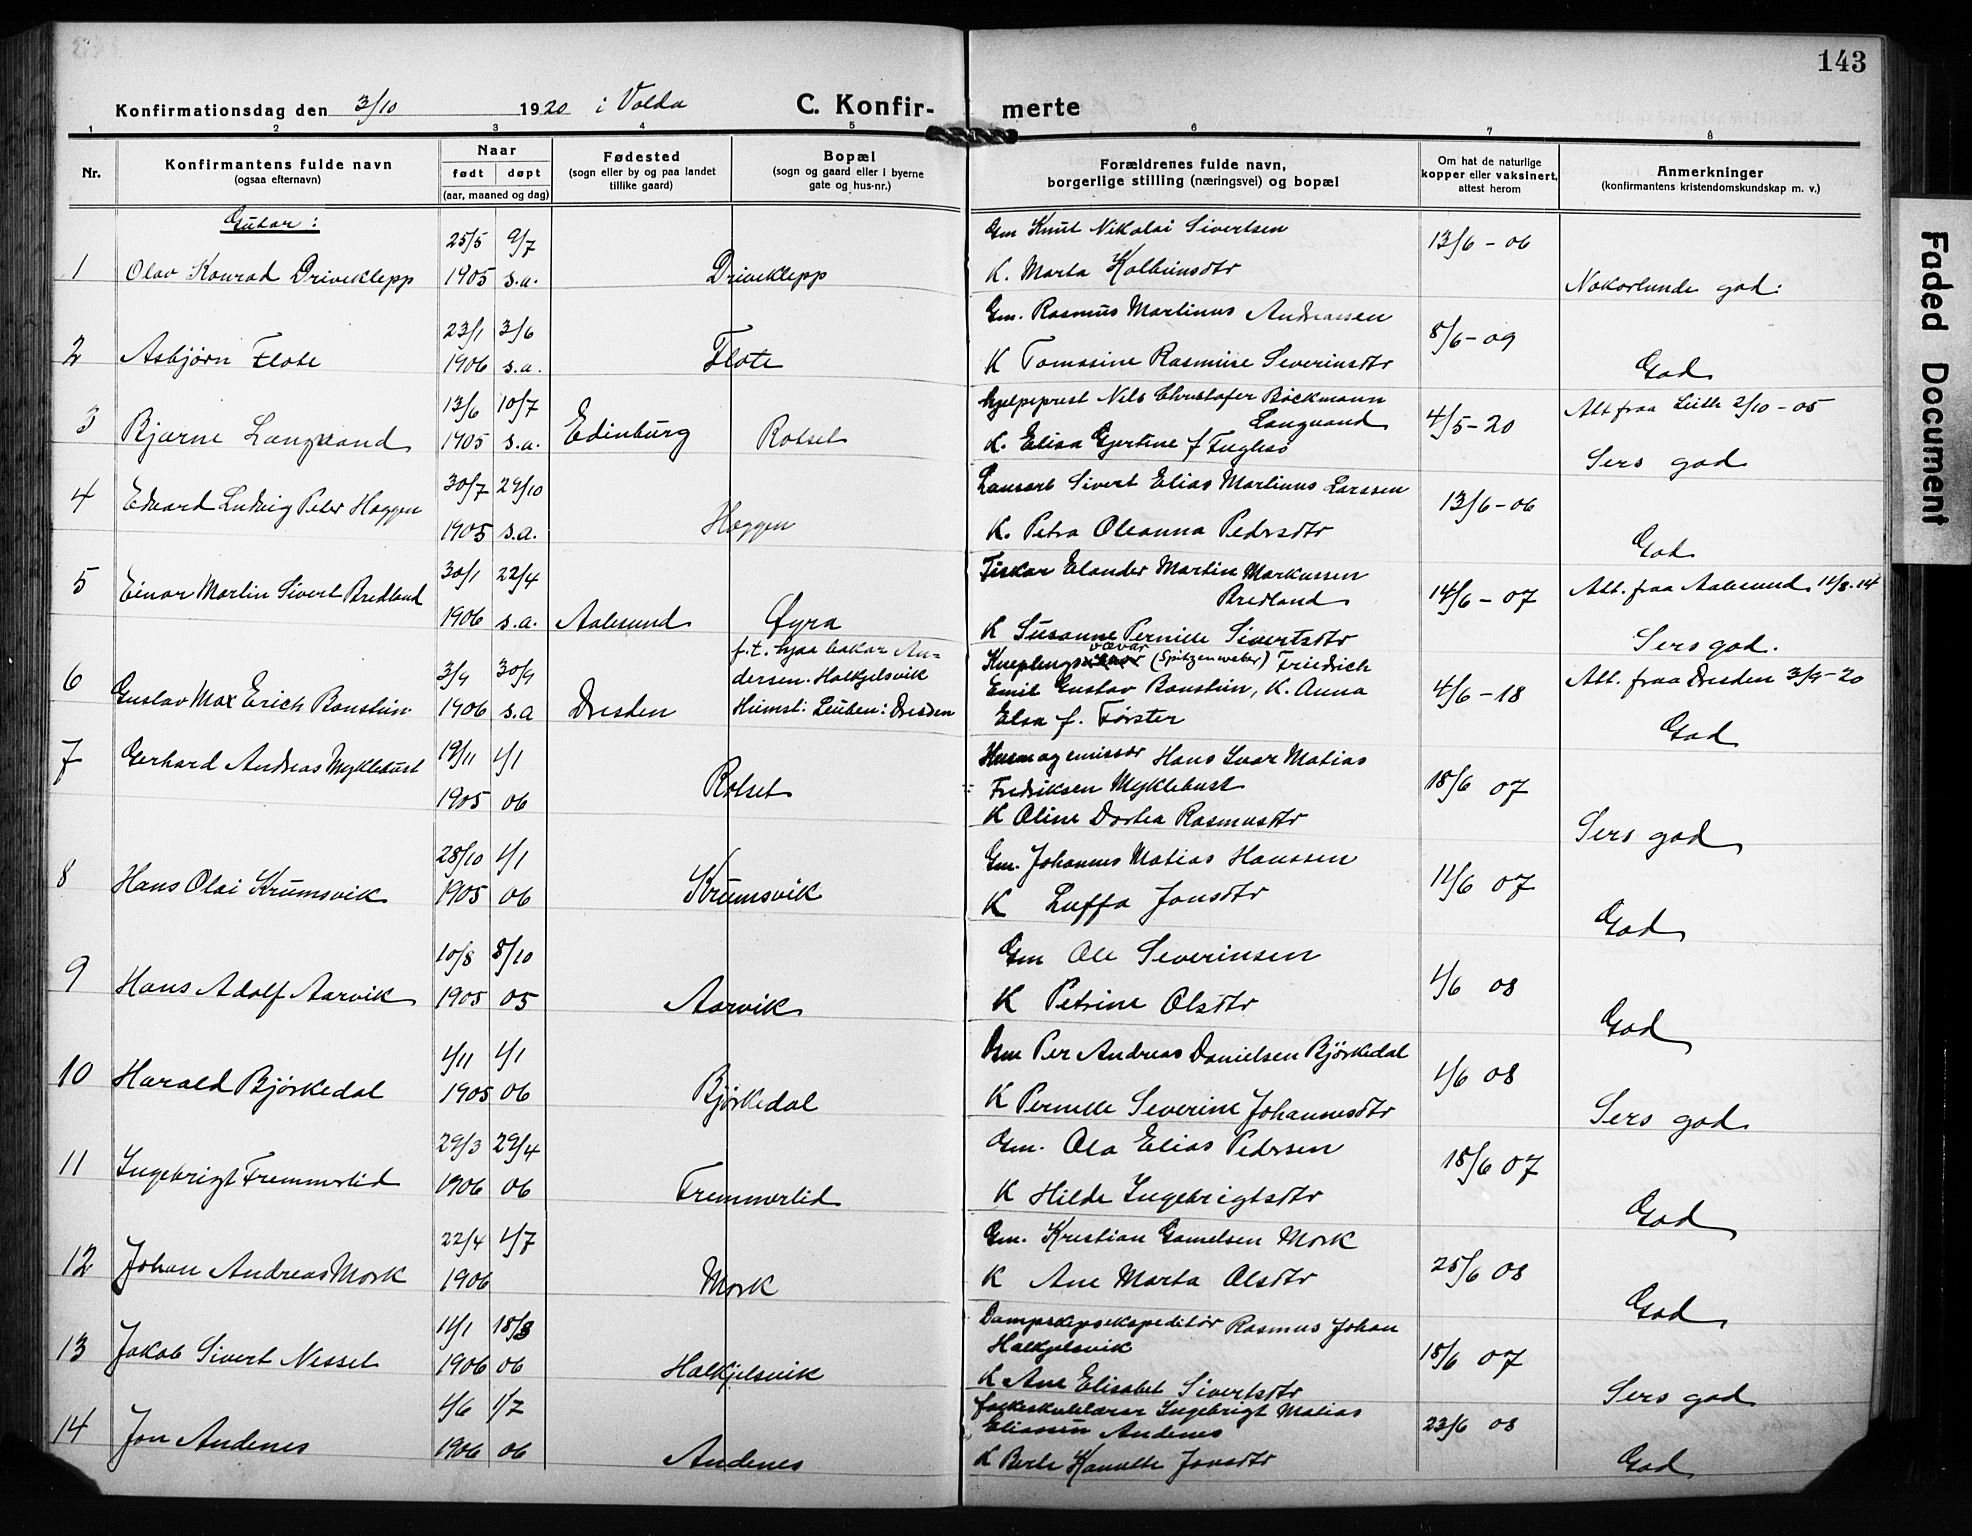 143
Konfirmationsdag den 3/10 1920 i Volda C. Konfir- merte
1 2 3 4 5 6 7 8
Nr.
Konfirmantens fulde navn
(ogsaa efternavn)
Naar
født døpt
(aar, maaned og dag)
Fødested
(sogn eller by og paa landet
tillike gaard)
Bopæl
(sogn og gaard eller i byerne
gate og hus-nr.)
Forældrenes fulde navn,
borgerlige stilling (næringsvei) og bopæl
Om hat de naturlige
kopper eller vaksinert,
attest herom
Anmerkninger
(konfirmantens kristendomskundskap m. v.)
Faded Document
Gutar:
25/5 9/7 Gm Knut Nikolai Sivertsen 13/6 - 06
1 Olav Konrad Driveklepp 1905 s.a. Driveklepp K. Marta Kolbeinsdtr Nokorlunde god.
23/1 3/6 Gm. Rasmus Martinus Andreassen 8/6 - 09
2 Asbjørn Flote 1906 s.a. Flote K Tomasine Rasmine Severinsdtr God
13/6 10/7 Hjelpeprest Nils Christofer Böckmann
Langvand 4/5 - 20 Att fraa Leith 2/10 - 05
3 Bjarne Langvand 1905 s.a. Edinburg Rotset K. Elisa Gjertine f Fuglesø Sers god
30/7 29/10 Lausarb Sivert Elias Martinus Larssen 13/6 - 06
4 Edvard Ludvig Peter Heggen 1905 s.a. Heggen K. Petra Oleanna Pedrsdtr God
30/1 22/4 Fiskar Elander Martin Markussen
Bredland 14/6 - 07 Att. fraa Aalesund 11/8-14
5 Einar Martin Sivert Bredland 1906 s.a. Aalesund Øyra K Susanne Pernille Sivertsdtr Sers god.
3/9 30/9 f.t. hjaa bakar An-
dersen. Halkjelsvik
Heimst: Leuben: Dresden
6 Gustav Max Erich Bonstein 1906 s.a Dresden
Kneplings vævar (Spitzenweber) Friedrich
Emil Gustav Bonstein, K. Anna
Elsa f. Förster 4/6 - 18 Att. fraa Dresden 3/9-20
God
7 Gerhard Andreas Myklebust 19/11 1/1
1905 06 Rotset
Husm og emissær Hans Ivar Matias
Fredriksen Myklebust
K Oline Dortea Rasmusdtr 18/6 07 Sers god
28/10 1/1 Gm. Johannes Matias Hanssen
8 Hans Olai Krumsvik 1905 06 Krumsvik K Luffa Jonsdtr 11/6 07 God
10/8 8/10 Gm Ole Severinsen
9 Hans Adolf Aarvik 1905 05 Aarvik K Petrine Olsdtr 1/6 08 God
1/11 1/1 Gm Per Andreas Danielsen Bjørkedal
10 Harald Bjørkedal 1905 06 Bjørkedal K Pernille Severine Johannesdtr 1/6 08 Sers god
29/3 29/4 Gm. Ola Elias Pedrsen
11 Ingebrigt Fremmerlid 1906 06 Fremmerlid K Hilde Ingebrigtsdtr 18/6 07 God
22/4 1/7 Gm. Kristian Gamelsen Mork
12 Johan Andreas Mork 1906 Mork K Ane Marta Olsdtr 25/6 08 God
11/1 18/3 Dampskipsekspeditör Rasmus Johan
Halkjelsvik
13 Jakob Sivert Nesset 1906 06 Halkjelsvik K Ane Elisabet Sivertsdtr 18/6 07 Sers god
4/6 1/7 folkeskulelærar Ingebrigt Matias
Eliassen Andenes
14 Jon Andenes 1906 06 Andenes K Berte Kanutte Jonsdtr 23/6 08 God